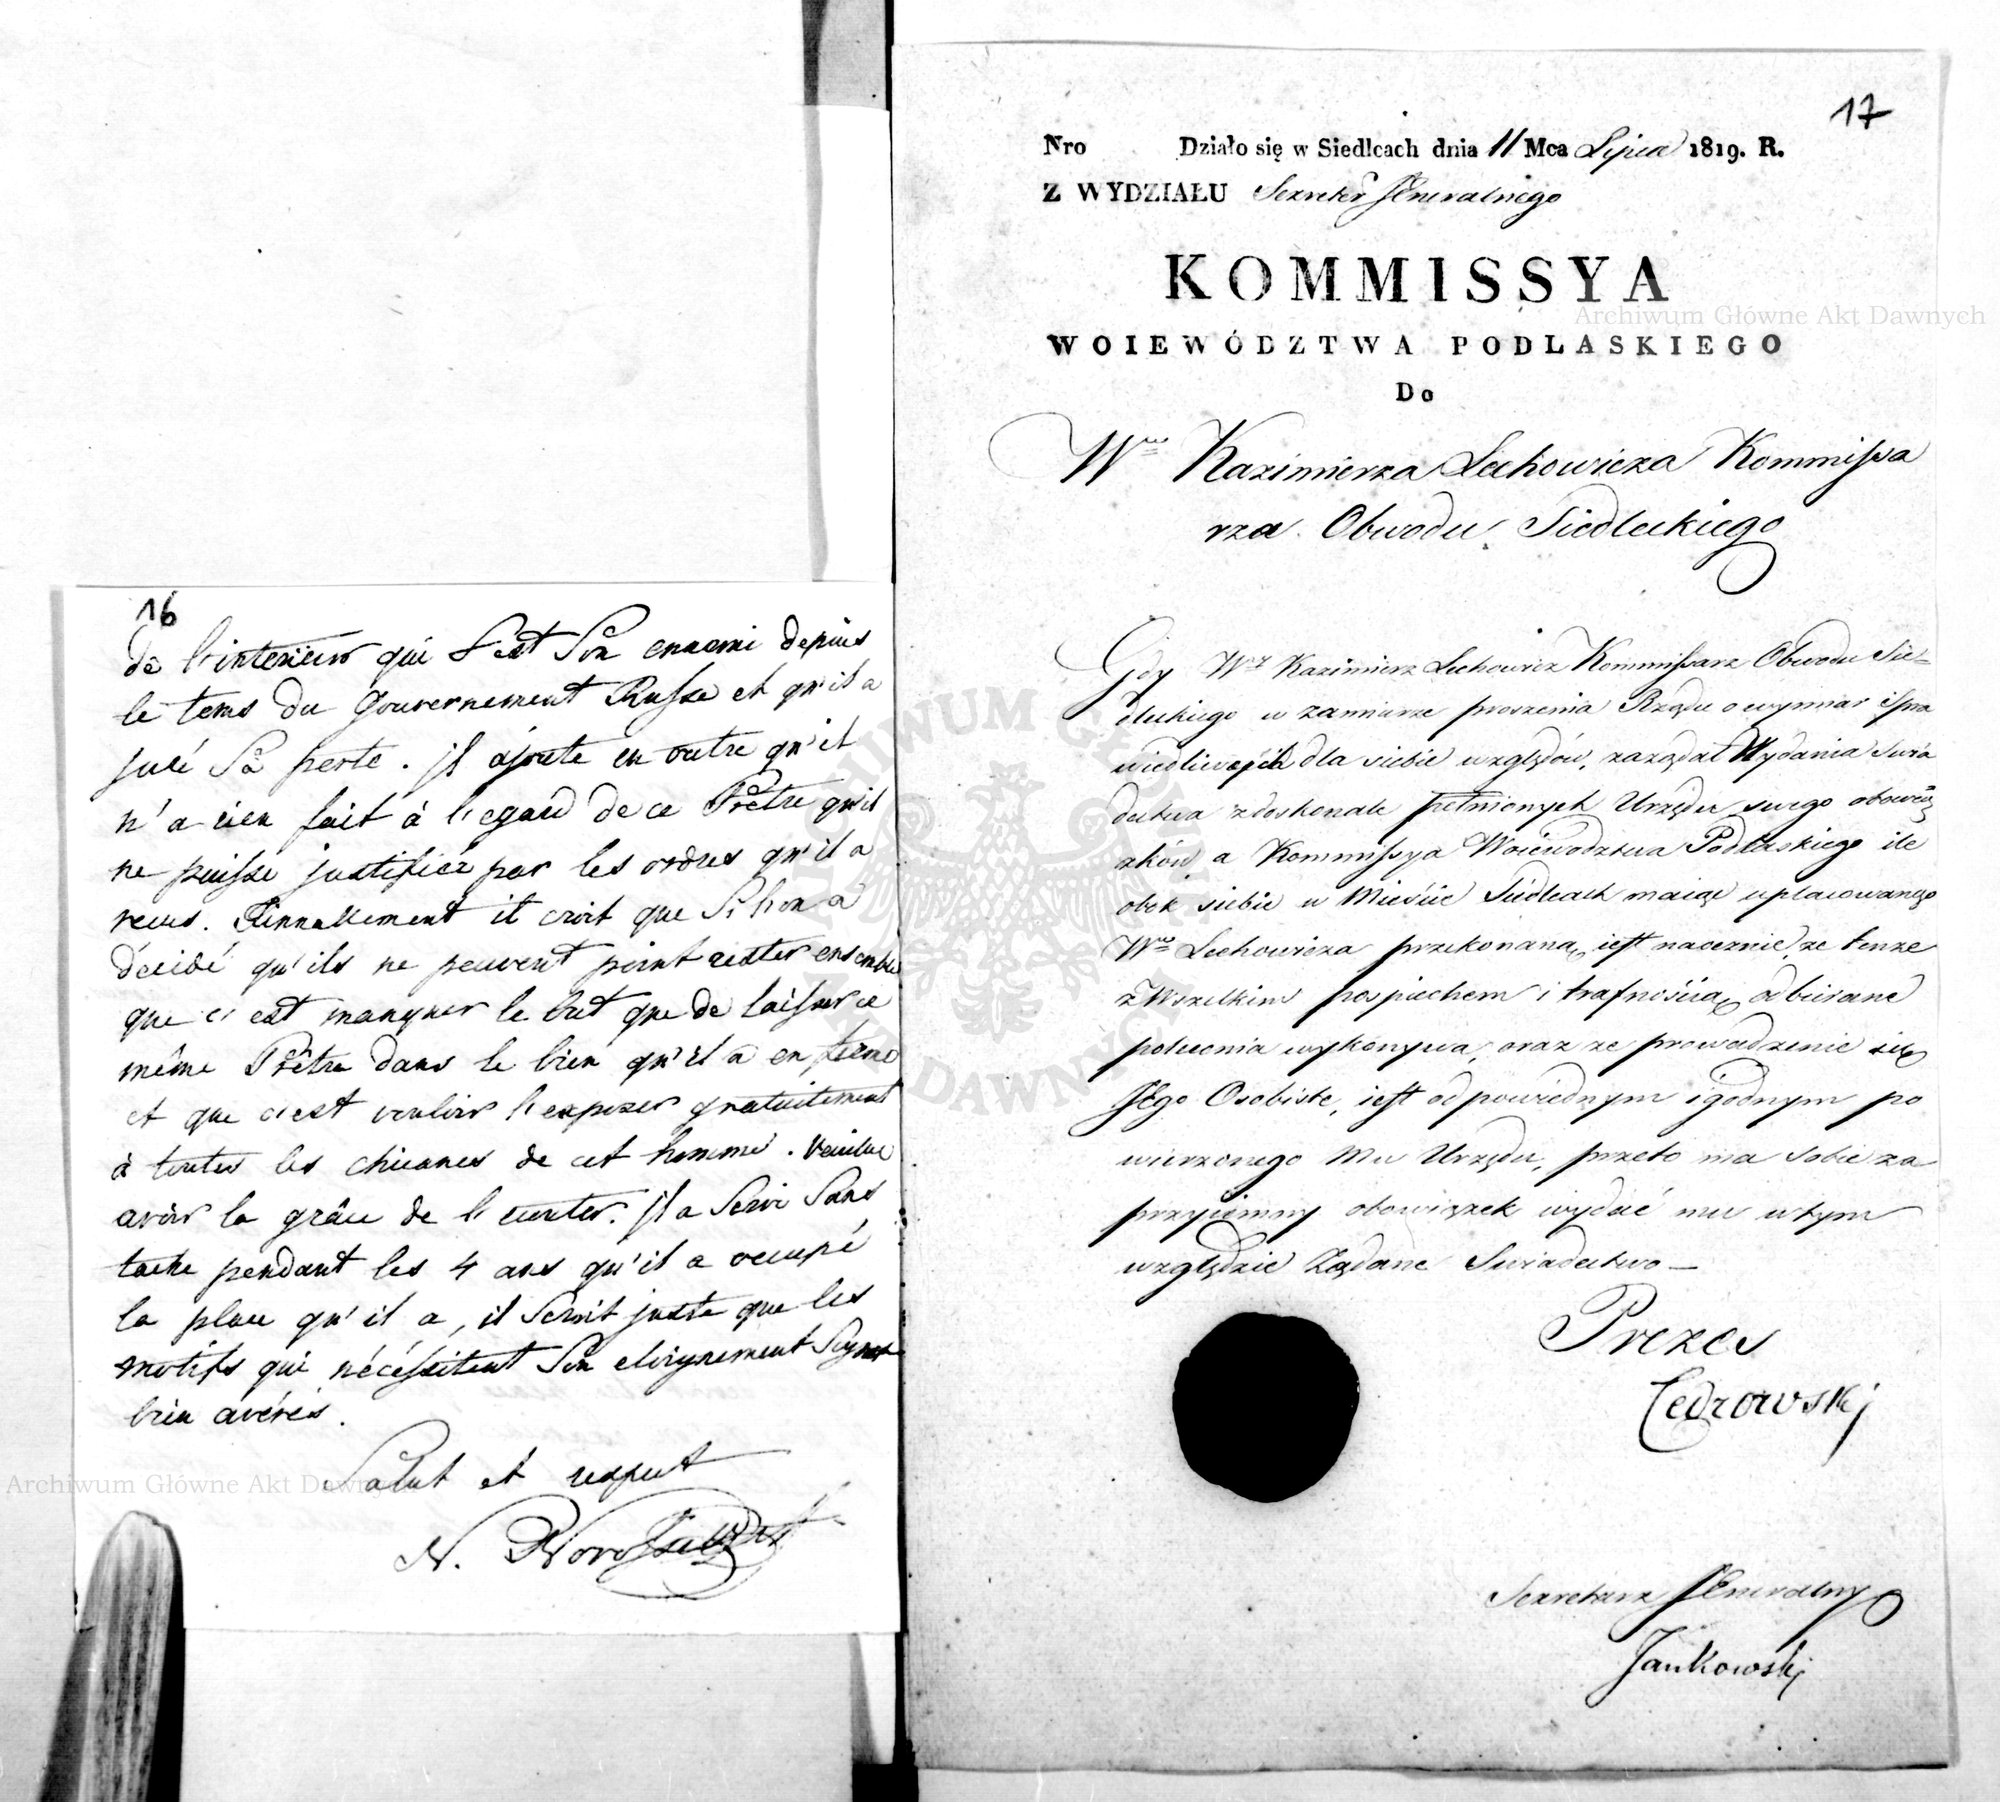 16
de l'interieur qui s'est son ennemi depuis
le tems du Gouvernement Russe et qu'il a
juré sa perte. Il ajoute en outre qu'il
n'a rien fait à l'egard de ce Prêtre qu'il
ne puisse justifier par les ordres qu'il a
recus. Finnallement il croit que si l'on a
décidé qu'ils ne peuvent point rester ensemble
que c'est manquer le but que de laisser ce
même Prêtre dans le bien qu'il a en ferme
et que c'est vouloir l'exposer gratuitement
à toutes les chicanes de cet homme. Veuillez
avoir la grâce de l'ecouter. Il a servi sans
tache pendant les 4 ans qu'il a occupé
la place qu'il a, il seroit juste que les
motifs qui nécéssitent son eloignement soyent
bien avérés.
Salut et respect
N. Novossiltzoff
17
Nro Działo się w Siedlcach dnia 11 Mca Lipca 1819. R.
Z WYDZIAŁU Sekretar Jeneralnego
KOMMISSYA
WOIEWÓDZTWA PODLASKIEGO
Do
Wgo Kazimierza Lechowicza Kommissa
rza Obwodu Siedleckiego
Gdy Wy Kazimierz Lechowicz Kommissarz Obwodu Sie=
dleckiego w zamiarze proszenia Rządu o wymiar spra
wiedliwych dla siebie względów, zażądał Wydania Swia
dectwa zdoskonale pełnionych Urzędu swego obowią
zków, a Kommissya Woiewodztwa Podlaskiego ile
obok siebie w Mieście Siedlcach maiąc uplacowanego
Wgo Lechowicza przekonaną iest naocznie, że tenże
z Wszelkim pospiechem i trafnością odbierane
polecenia wykonywa, oraz że prowadzenie się
Jego Osobiste, iest odpowiednym i godnym po
wierzonego Mu Urzędu, przeto ma sobie za
przyiemny obowiązek wydać mu w tym
względzie Żądane Swiadectwo —
Prezes
Cedrowski
Sekretarz Jeneralny
Jankowski
Archiwum Główne Akt Dawnych
Archiwum Główne Akt Dawnych
ARCHIWUM GŁÓWNE AKT DAWNYCH